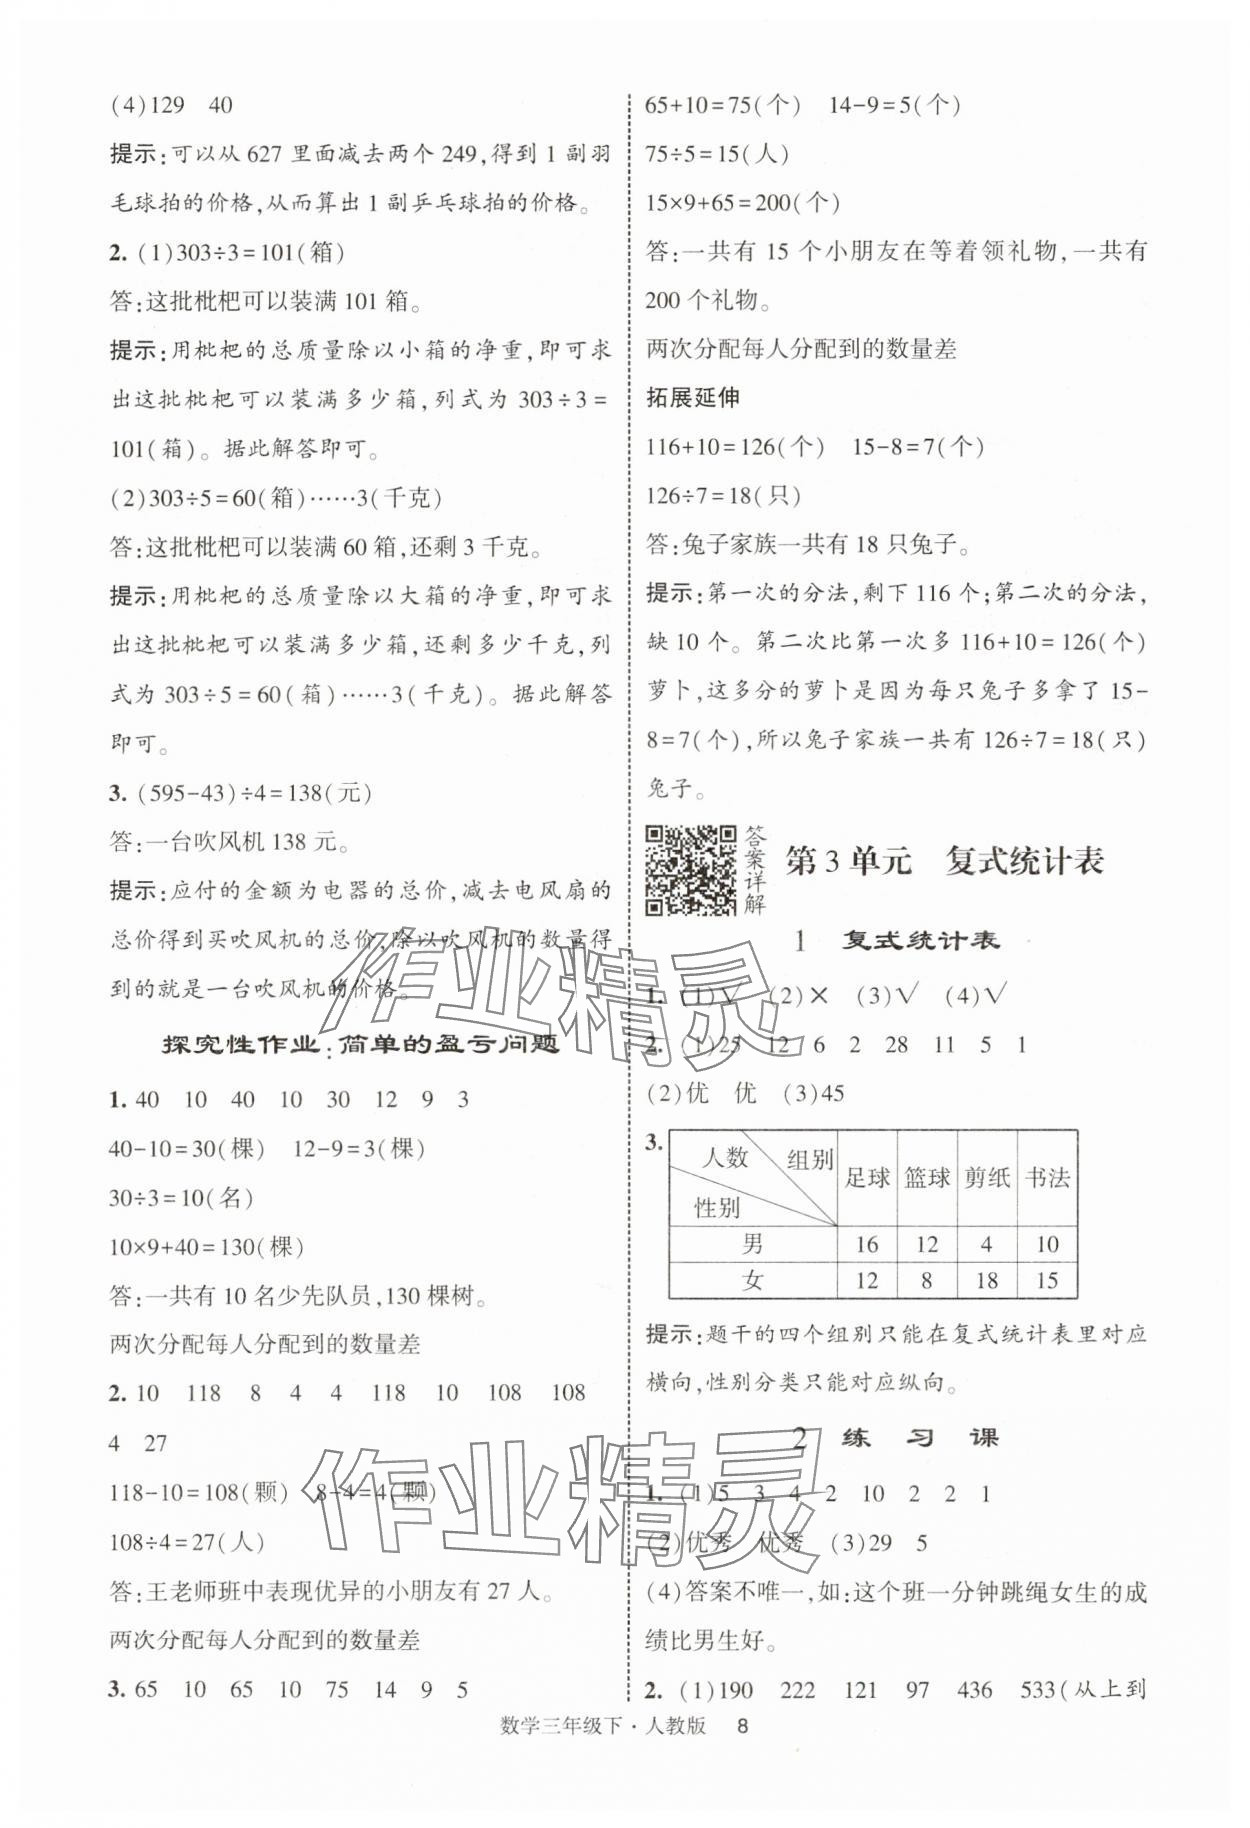 (4)129　40
提示:可以从 627 里面减去两个 249,得到 1 副羽
毛球拍的价格,从而算出 1 副乒乓球拍的价格。
2. (1)303÷3=101(箱)
答:这批枇杷可以装满 101 箱。
提示:用枇杷的总质量除以小箱的净重,即可求
出这批枇杷可以装满多少箱,列式为 303÷3=
101(箱)。据此解答即可。
(2)303÷5=60(箱)……3(千克)
答:这批枇杷可以装满 60 箱,还剩 3 千克。
提示:用枇杷的总质量除以大箱的净重,即可求
出这批枇杷可以装满多少箱,还剩多少千克,列
式为 303÷5=60(箱)……3(千克)。据此解答
即可。
3. (595-43)÷4=138(元)
答:一台吹风机 138 元。
提示:应付的金额为电器的总价,减去电风扇的
总价得到买吹风机的总价,除以吹风机的数量得
到的就是一台吹风机的价格。
探究性作业:简单的盈亏问题
1. 40　10　40　10　30　12　9　3
40-10=30(棵)　12-9=3(棵)
30÷3=10(名)
10×9+40=130(棵)
答:一共有 10 名少先队员,130 棵树。
两次分配每人分配到的数量差
2. 10　118　8　4　4　118　10　108　108
4　27
118-10=108(颗)　8-4=4(颗)
108÷4=27(人)
答:王老师班中表现优异的小朋友有 27 人。
两次分配每人分配到的数量差
3. 65　10　65　10　75　14　9　5
65+10=75(个)　14-9=5(个)
75÷5=15(人)
15×9+65=200(个)
答:一共有 15 个小朋友在等着领礼物,一共有
200 个礼物。
两次分配每人分配到的数量差
拓展延伸
116+10=126(个)　15-8=7(个)
126÷7=18(只)
答:兔子家族一共有 18 只兔子。
提示:第一次的分法,剩下 116 个;第二次的分法,
缺 10 个。第二次比第一次多 116+10=126(个)
萝卜,这多分的萝卜是因为每只兔子多拿了 15-
8=7(个),所以兔子家族一共有 126÷7=18(只)
兔子。
答案详解
第 3 单元　复式统计表
1　复式统计表
1. (1)√　(2)×　(3)√　(4)√
2. (1)25　12　6　2　28　11　5　1
(2)优　优　(3)45
3.
人数　组别　性别　足球　篮球　剪纸　书法
男　16　12　4　10
女　12　8　18　15
提示:题干的四个组别只能在复式统计表里对应
横向,性别分类只能对应纵向。
2　练　习　课
1. (1)5　3　4　2　10　2　2　1
(2)优秀　优秀　(3)29　5
(4)答案不唯一,如:这个班一分钟跳绳女生的成
绩比男生好。
2. (1)190　222　121　97　436　533(从上到
数学三年级下·人教版　8
作业精灵
作业精灵